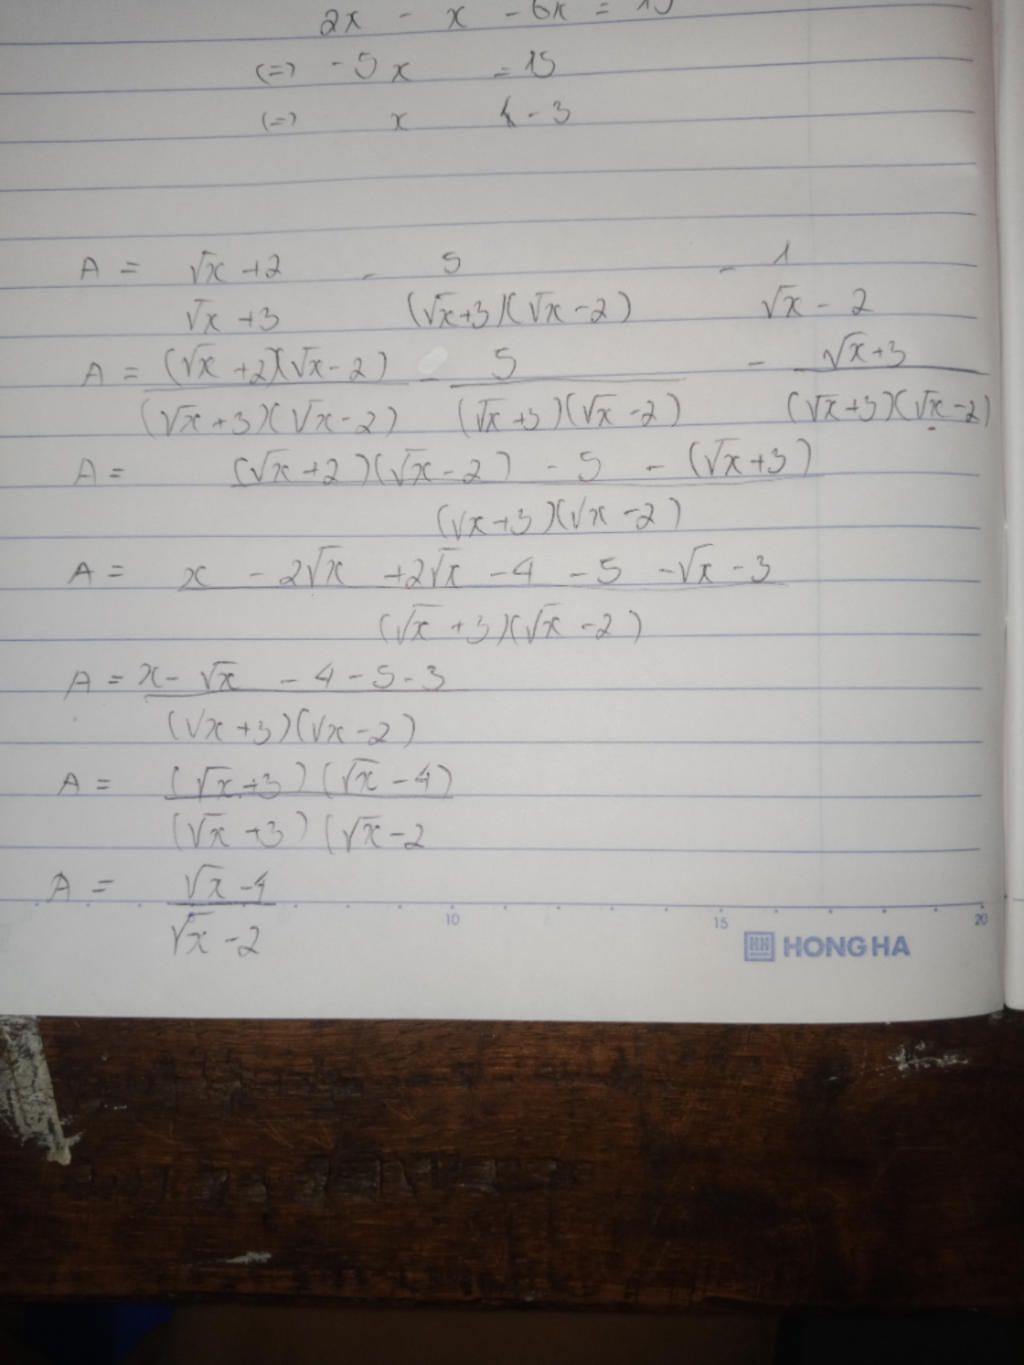 2x - x - 6x = 15
(=) -5x = 15
(=) x = -3
A = √x +2 - 5 - 1
√x +3 (√x+3)(√x-2) √x - 2
A = (√x +2)(√x-2) - 5 - √x+3
(√x+3)(√x-2) (√x+3)(√x-2) (√x+3)(√x-2)
A = (√x+2)(√x-2) - 5 - (√x+3)
(√x+3)(√x-2)
A = x - 2√x +2√x - 4 - 5 -√x - 3
(√x +3)(√x -2)
A = x- √x - 4 - 5 - 3
(√x +3)(√x-2)
A = (√x+3)(√x-4)
(√x +3)(√x-2
A = √x -4
√x -2
10 15 20
HONG HA